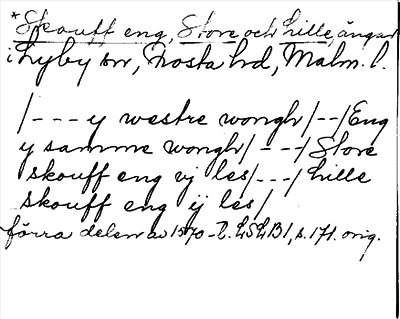 *Skouff eng, Store och Lille, ängar
i Lyby sn, Frosta hd, Malm. l.
/--- y westre wongh/--/Eng
y samme wongh/---/Store
skouff eng vj les/---/Lille
skouff eng ij les/
förra delen av 1570-t. LSLB1, s. 171. orig.